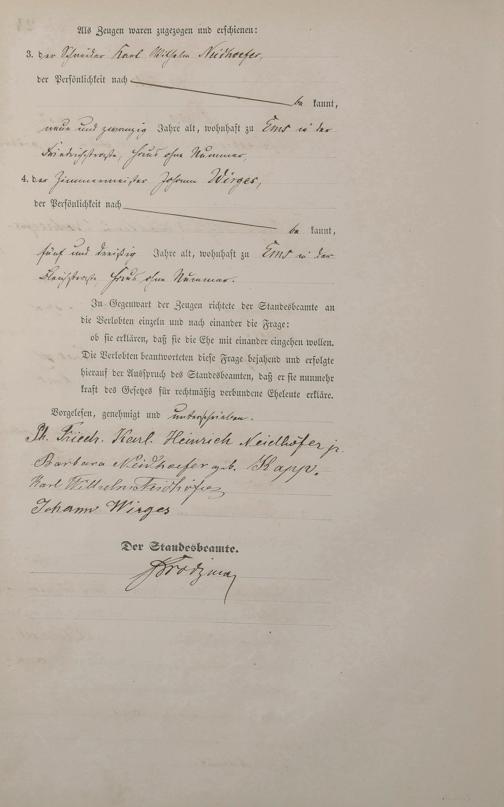 Als Zeugen waren zugezogen und erschienen:
3. der Schneider Karl Wilhelm Neidhoefer,
der Persönlichkeit nach
be kannt,
neun und zwanzig Jahre alt, wohnhaft zu Ems in der
Friedrichstraße, Haus ohne Nummer,
4. der Zimmermeister Johann Wirges,
der Persönlichkeit nach
be kannt,
fünf und dreißig Jahre alt, wohnhaft zu Ems in der
Bleichstraße Haus ohne Nummer.
In Gegenwart der Zeugen richtete der Standesbeamte an
die Verlobten einzeln und nach einander die Frage:
ob sie erklären, daß sie die Ehe mit einander eingehen wollen.
Die Verlobten beantworteten diese Frage bejahend und erfolgte
hierauf der Ausspruch des Standesbeamten, daß er sie nunmehr
kraft des Gesetzes für rechtmäßig verbundene Eheleute erkläre.
Vorgelesen, genehmigt und unterschrieben.
Ph. Friedr. Karl. Heinrich Neidhöfer jr.
Barbara Neidhoefer geb. Kapp.
Karl Wilhelm Neidhöfer
Johann Wirges
Der Standesbeamte.